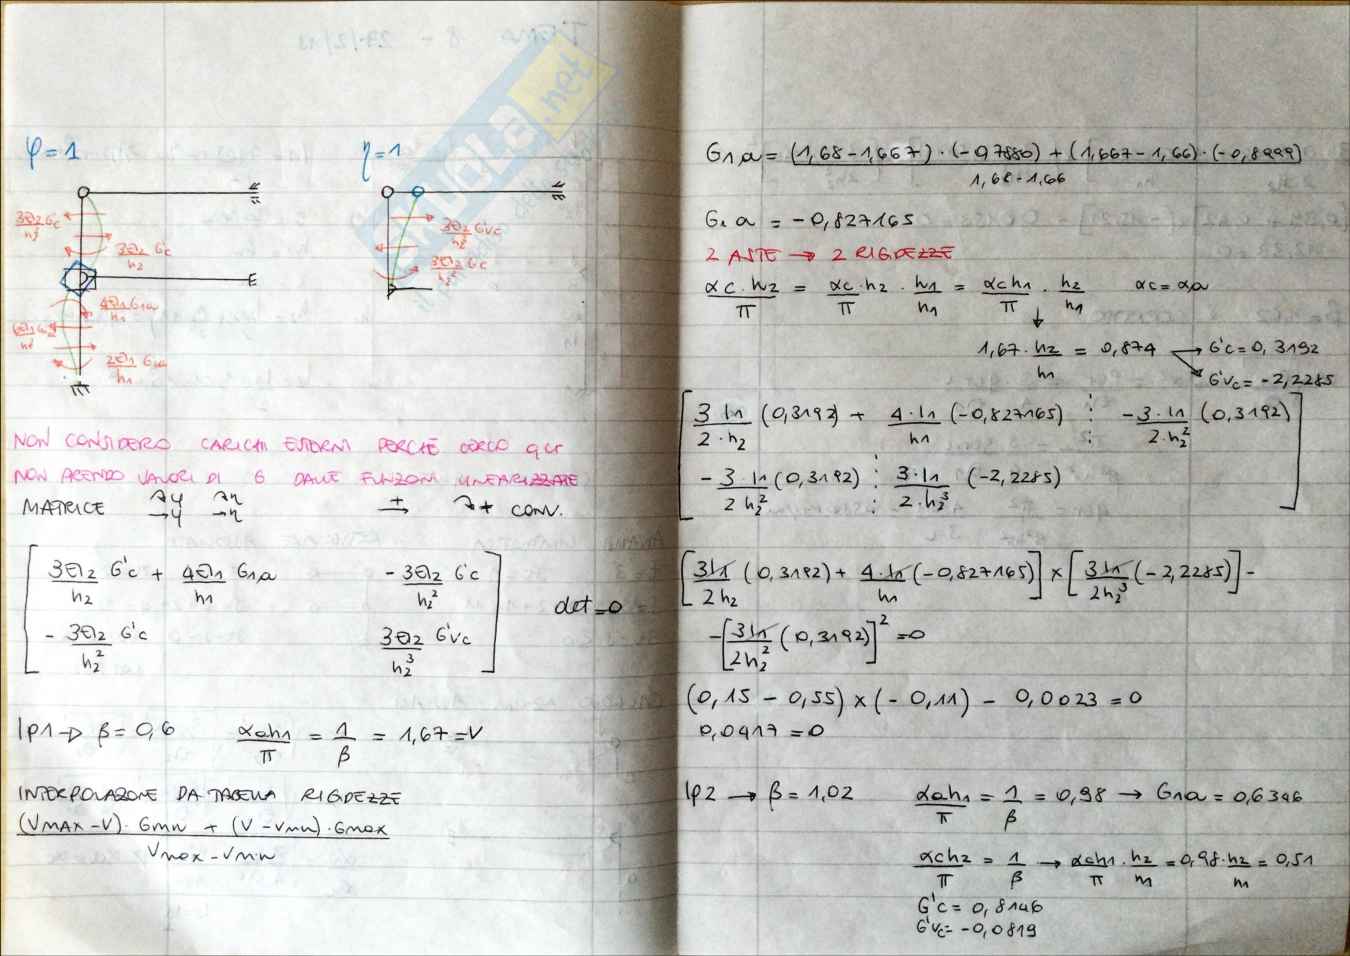 φ=1
η=1
3EI2 G'c / h2²
3EI2 G'c / h2
4EI1 G1a / h1
2EI1 G1a / h1
3EI2 G'vc / h2³
3EI2 G'c / h2²
NON CONSIDERO CARICHI ESTERNI PERCHÉ CERCO qcr
NON AVENDO VALORI DI G DALLE FUNZIONI LINEARIZZATE
MATRICE φ η + + CONV.
[ 3EI2/h2 G'c + 4EI1/h1 G1a   - 3EI2/h2² G'c ]
[ - 3EI2/h2² G'c   3EI2/h2³ G'vc ] det=0
Ip1 → β=0,6   αah1/π = 1/β = 1,67 = V
INTERPOLAZIONE DA TABELLA RIGIDEZZE
(VMAX-V)·Gmin + (V-Vmin)·Gmax / Vmax-Vmin
G1a = (1,68-1,667)·(-0,7880)+(1,667-1,66)·(-0,8999) / 1,68-1,66
G1a = -0,827165
2 ASTE → 2 RIGIDEZZE
αc·h2/π = αc·h2/π · h1/h1 = αch1/π · h2/h1   αc=αa
1,67·h2/h1 = 0,874 → G'c=0,3192
G'vc=-2,2285
[ 3·In/2·h2 (0,3192) + 4·In/h1 (-0,827165)   -3·In/2·h2² (0,3192) ]
[ -3·In/2h2² (0,3192)   3·In/2·h2³ (-2,2285) ]
[3In/2h2 (0,3192) + 4·In/h1 (-0,827165)] × [3In/2h2³ (-2,2285)] -
-[3In/2h2² (0,3192)]² =0
(0,15 - 0,55) × (-0,11) - 0,0023 = 0
0,0417=0
Ip2 → β=1,02   αah1/π = 1/β = 0,98 → G1a=0,6346
αch2/π = 1/β → αch1/π · h2/h1 = 0,98·h2/h1 = 0,51
G'c= 0,8146
G'vc= -0,0819